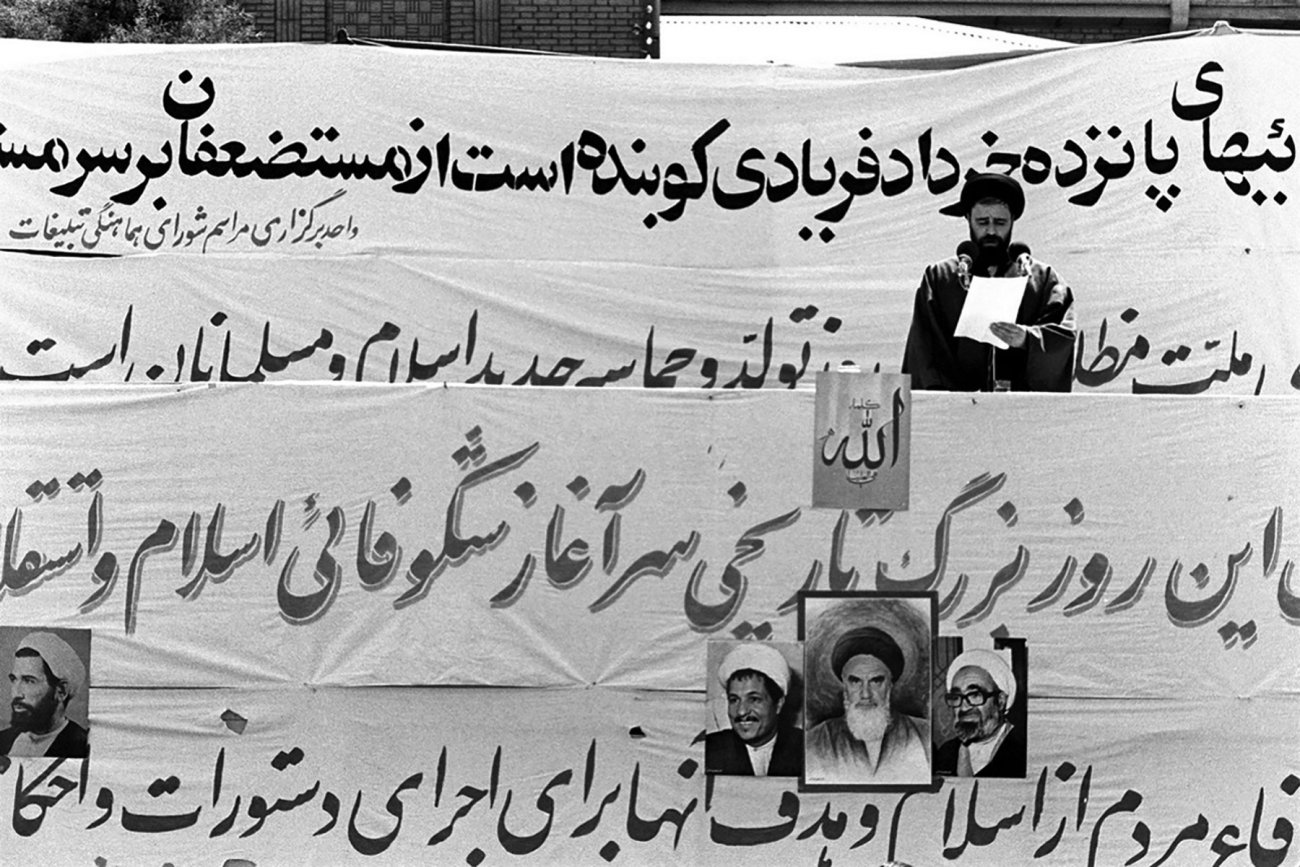 ئیهای پانزده خرداد فریادی کوبنده است از مستضعفان بر سر مس
واحد برگزاری مراسم شورای هماهنگی تبلیغات
ملّت مظل روز تولّد و حماسه جدید اسلام و مسلمانان است
الله
این روز بزرگ تاریخی سرآغاز شکوفائی اسلام و استقلا
فاع مردم از اسلام و هدف آنها برای اجرای دستورات و احکا